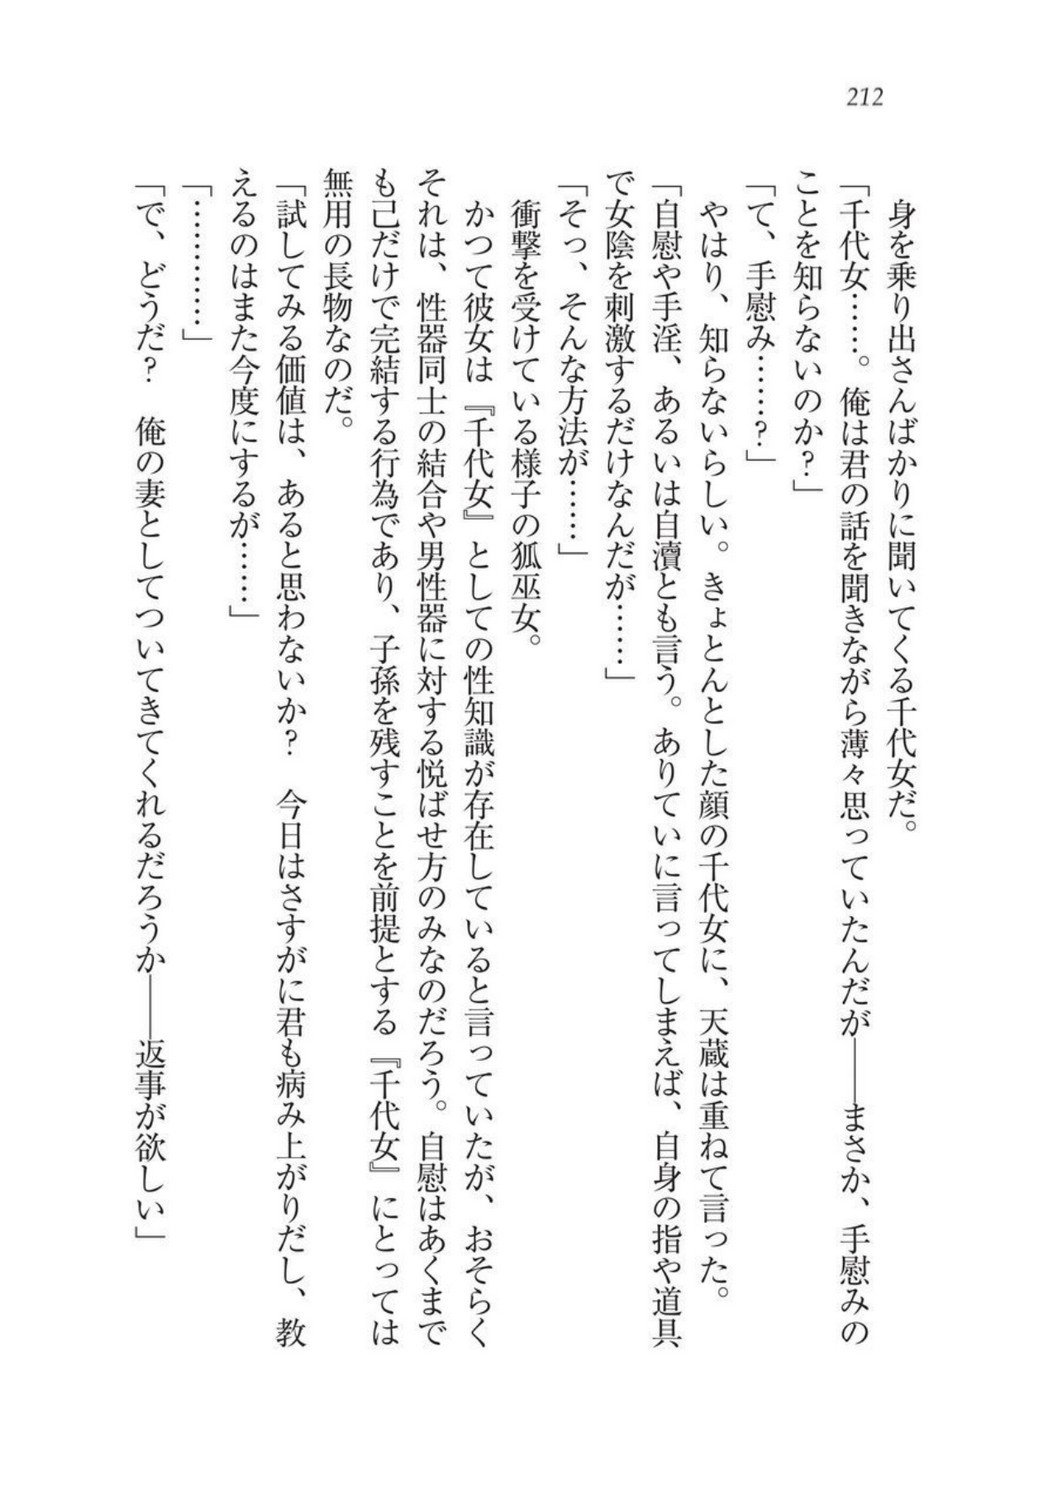 212
　身を乗り出さんばかりに聞いてくる千代女だ。
「千代女……。俺は君の話を聞きながら薄々思っていたんだが――まさか、手慰みの
ことを知らないのか？」
「て、手慰み……？」
　やはり、知らないらしい。きょとんとした顔の千代女に、天蔵は重ねて言った。
「自慰や手淫、あるいは自瀆とも言う。ありていに言ってしまえば、自身の指や道具
で女陰を刺激するだけなんだが……」
「そっ、そんな方法が……」
　衝撃を受けている様子の狐巫女。
　かつて彼女は『千代女』としての性知識が存在していると言っていたが、おそらく
それは、性器同士の結合や男性器に対する悦ばせ方のみなのだろう。自慰はあくまで
も己だけで完結する行為であり、子孫を残すことを前提とする『千代女』にとっては
無用の長物なのだ。
「試してみる価値は、あると思わないか？　今日はさすがに君も病み上がりだし、教
えるのはまた今度にするが……」
「…………」
「で、どうだ？　俺の妻としてついてきてくれるだろうか――返事が欲しい」